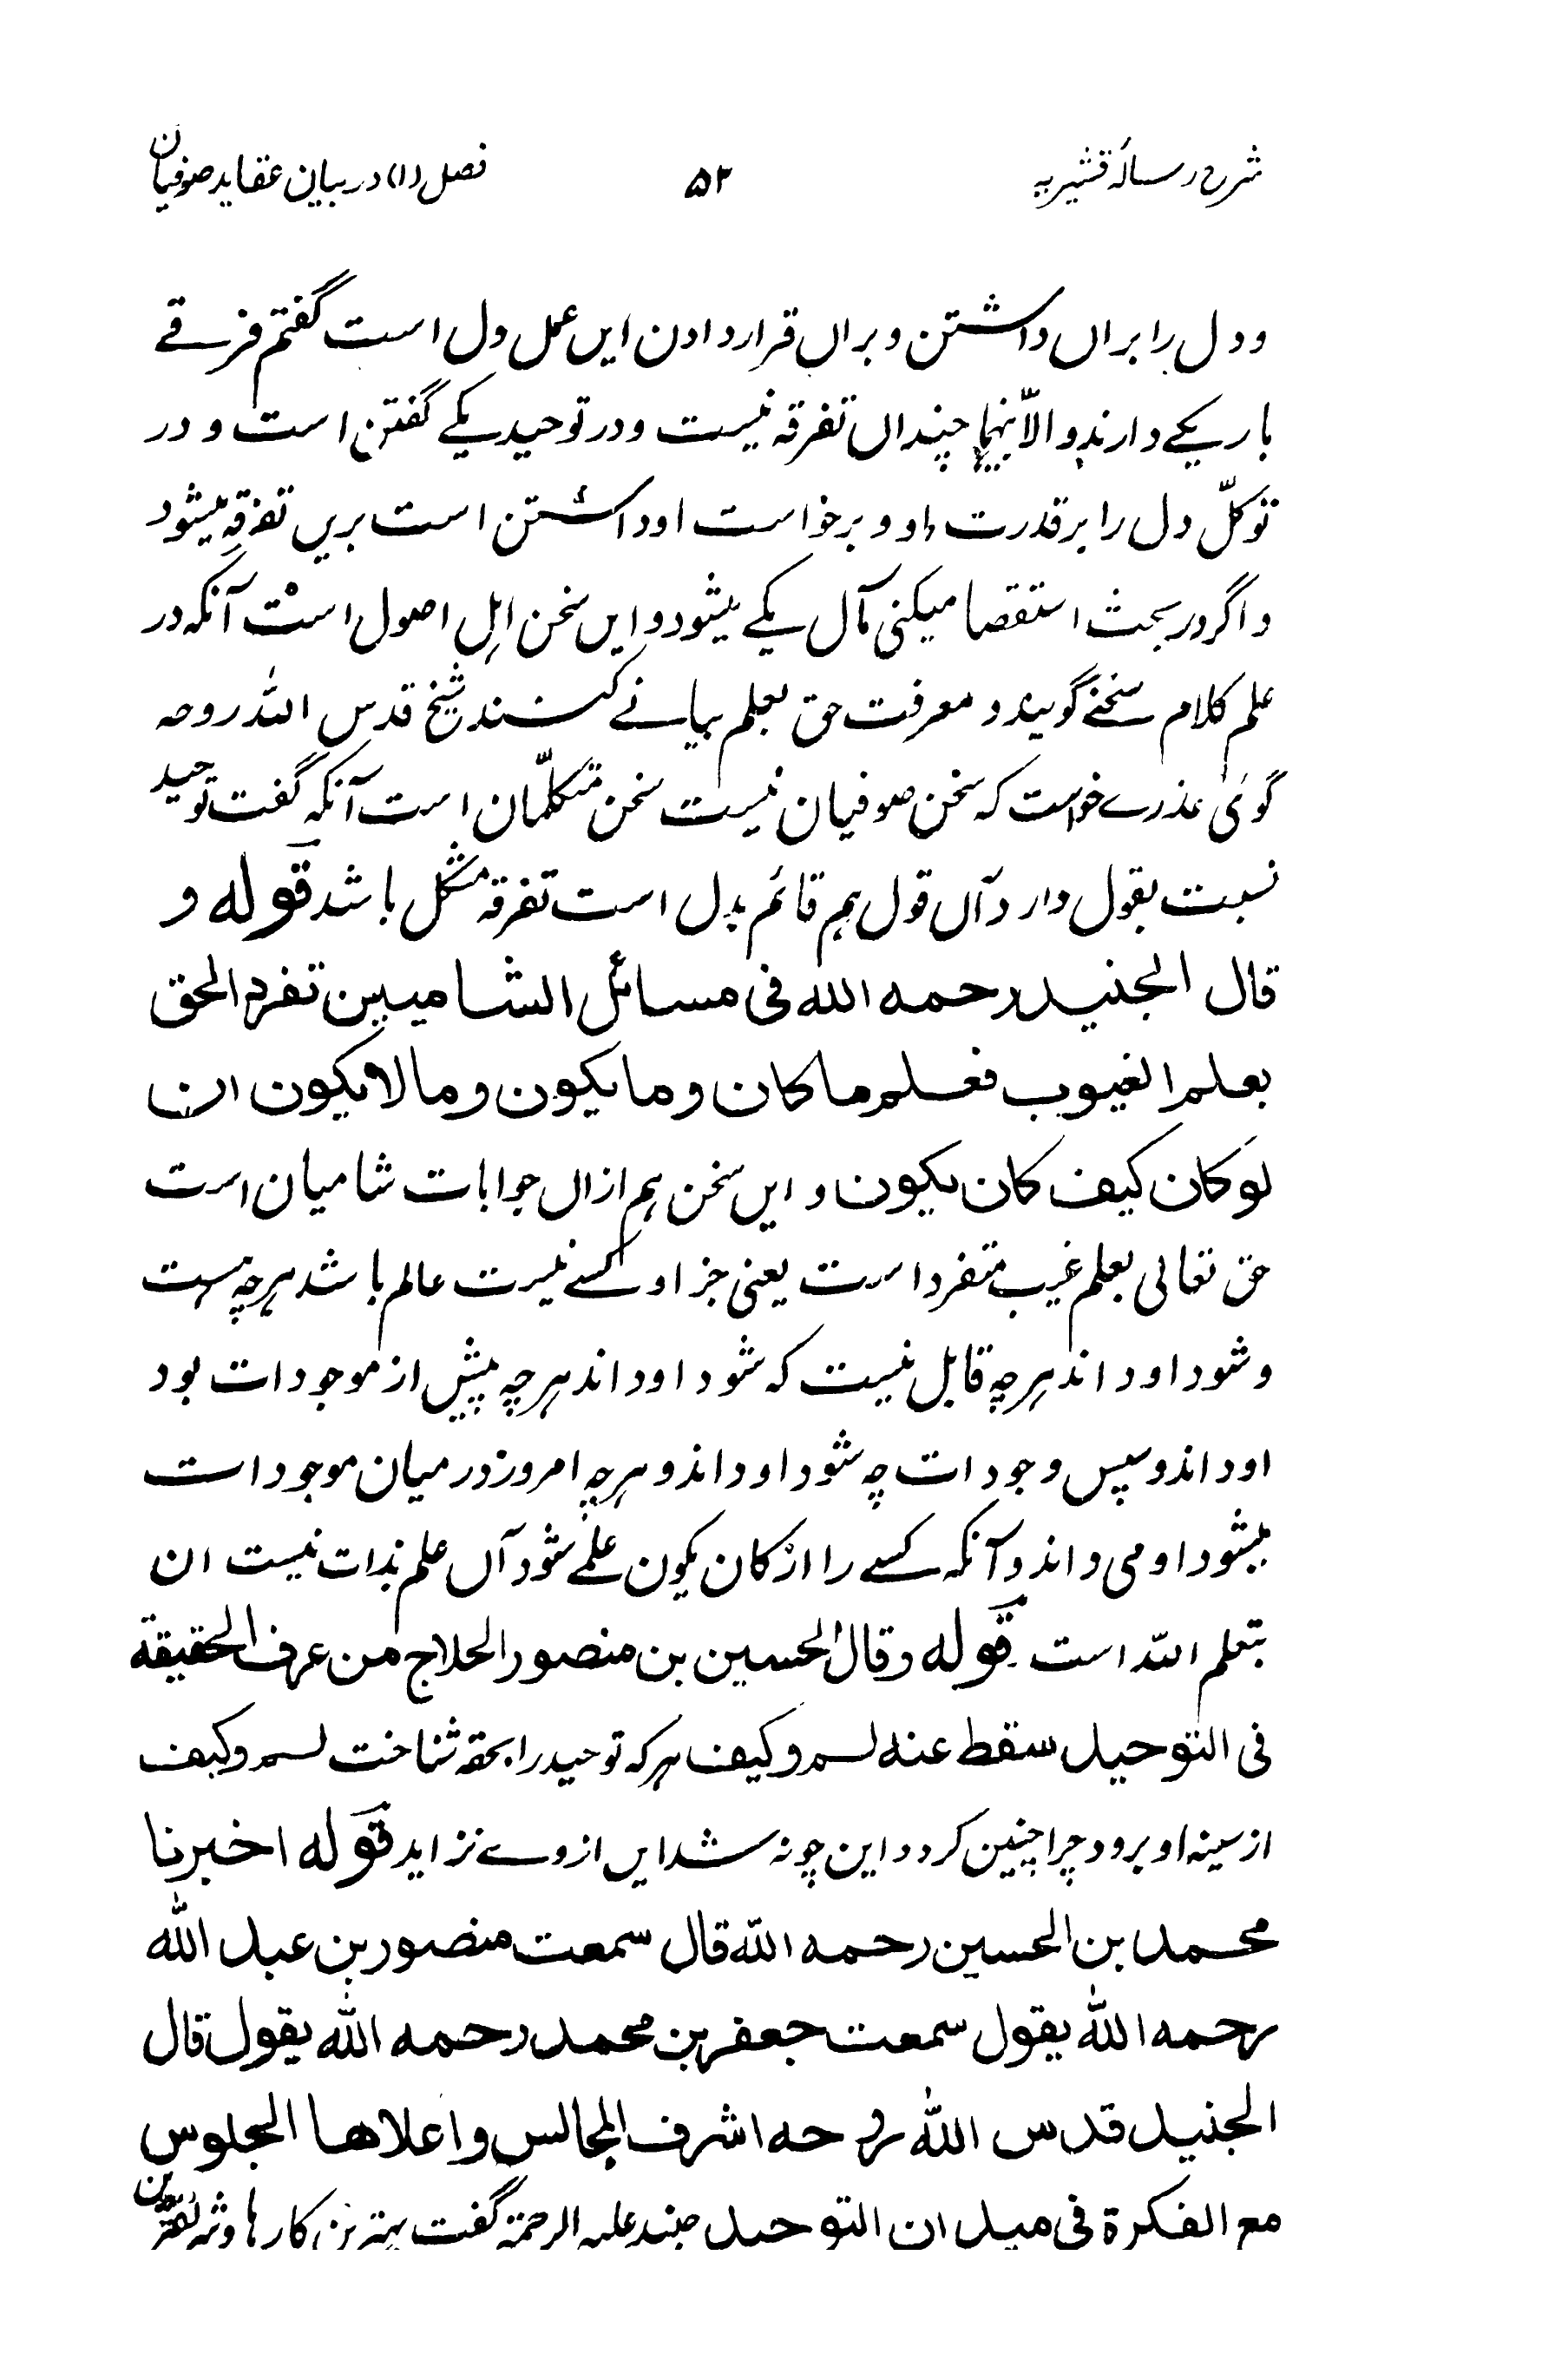 شرح رسالهٔ قشیریه ۵۲ فصل (۱) در بیان عقاید صوفیان
و دل را براں داشتن و براں قرار دادن ایں عمل دل است گفتم فرقے
باریکے دارند و الّا بینہما چنداں تفرقہ نیست و در توحید یکے گفتن است و در
توکّل دل را بر قدرت او و برخواست او داشتن است بریں تفرقہ میشود
و اگر در بحث استقصا میکنی مآل یکے میشود و ایں سخن اہل اصول است آنکہ در
علم کلام سخنے گویند و معرفت حق بعلم بیانے کنند شیخ قدس اللہ روحہ
گوئی عذرے خواست کہ سخن صوفیان نیست سخن متکلّمان است آنکہ گفت توحید
نسبت بقول دارد آں قول ہم قائم بدل است تفرقہ مشکل باشد قوله و
قال الجنید رحمه الله فی مسائل الشامیین تفرد الحق
بعلم الغیوب فعلم ما کان و ما یکون و ما لا یکون ان
لو کان کیف کان یکون و ایں سخن ہم ازاں جوابات شامیان است
حق تعالی بعلم غیب متفرد است یعنی جز او کسے نیست عالم باشد ہرچہ ہست
و شود او داند ہرچہ قابل نیست کہ شود او داند ہرچہ پیش از موجودات بود
او داند و سپس وجودات چہ شود او داند و ہرچہ امروز در میان موجود است
میشود او می داند و آنکہ کسے را از کان یکون علمے شود آں علم بذات نیست ان
بتعلم اللہ است قوله وقال الحسین بن منصور الحلاج من عرف الحقیقة
فی التوحید سقط عنه لم و کیف ہر کہ توحید را بحقہ شناخت لم و کیف
از سینہ او برود چرا چنین کرد و این چونہ شد ایں از وے نزاید قوله اخبرنا
محمد بن الحسین رحمه الله قال سمعت منصور بن عبد الله
رحمه الله یقول سمعت جعفر بن محمد رحمه الله یقول قال
الجنید قدس الله روحه اشرف المجالس و اعلاها الجلوس
مع الفکرة فی میدان التوحید جنید علیہ الرحمۃ گفت بہترین کارها و